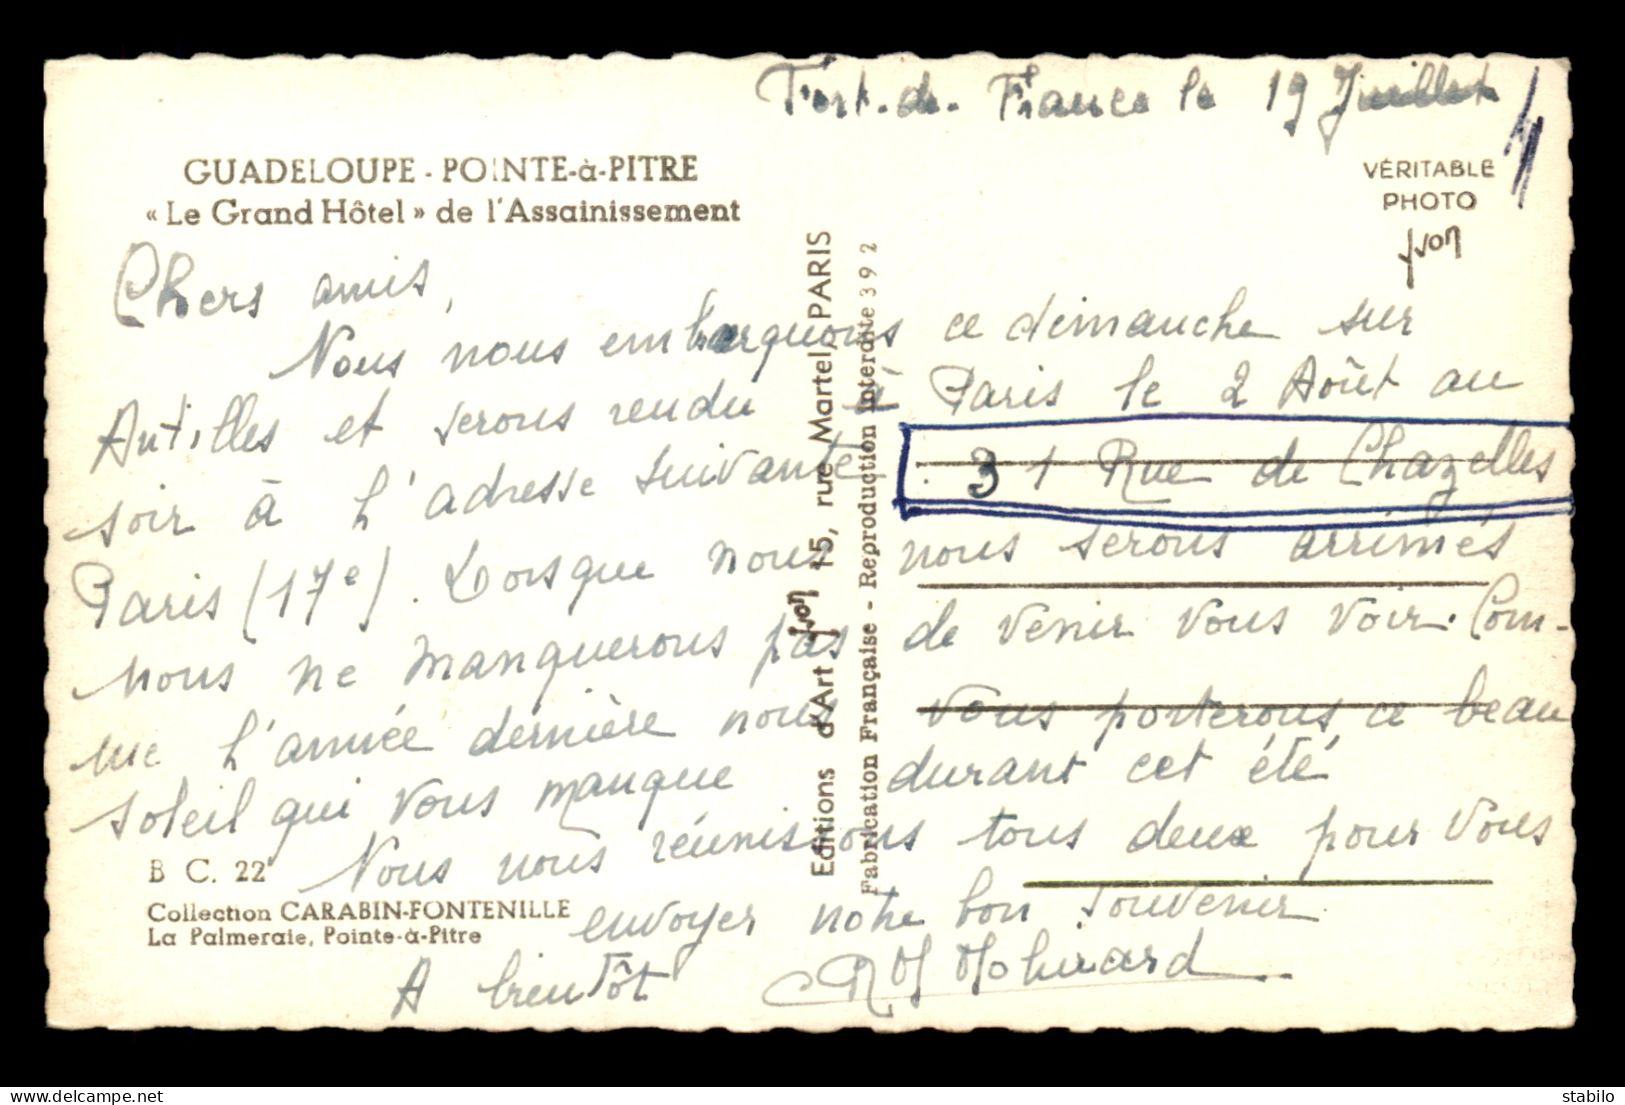 Fort-de-France le 19 Juillet
GUADELOUPE - POINTE-à-PITRE
« Le Grand Hôtel » de l'Assainissement
VÉRITABLE
PHOTO
yvon
Chers amis,
Nous nous embarquons ce dimanche sur
Antilles et serons rendu à Paris le 2 Août au
soir à l'adresse suivante 31 Rue de Chazelles
Paris (17e). Lorsque nous nous serons arrimés
nous ne manquerons pas de venir vous voir. Com-
me l'année dernière nous vous porterons ce beau
soleil qui vous manque durant cet été
Nous nous réunissons tous deux pour vous
envoyer notre bon souvenir
A bientôt
B C. 22
Collection CARABIN-FONTENILLE
La Palmeraie, Pointe-à-Pitre
Editions d'Art yvon 15, rue Martel, PARIS
Fabrication Française - Reproduction interdite 392
stabilo